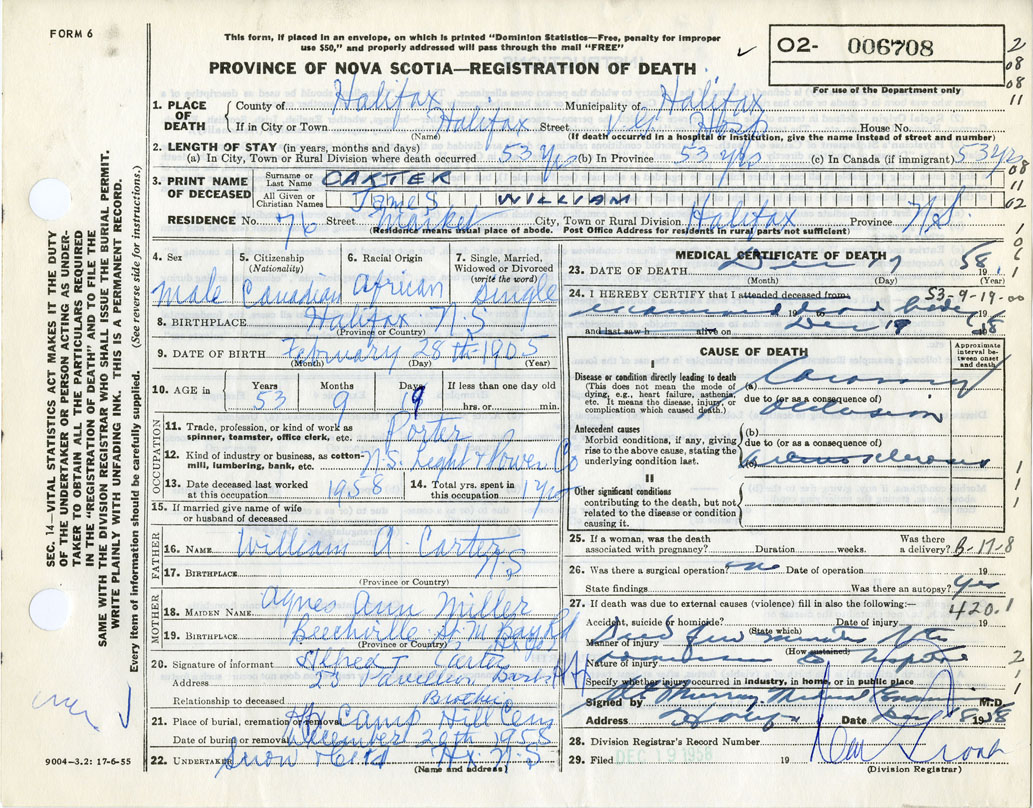 FORM 6
This form, if placed in an envelope, on which is printed "Dominion Statistics—Free, penalty for improper
use $50," and properly addressed will pass through the mail "FREE"
O2- 006708
For use of the Department only
PROVINCE OF NOVA SCOTIA—REGISTRATION OF DEATH
SEC. 14—VITAL STATISTICS ACT MAKES IT THE DUTY
OF THE UNDERTAKER OR PERSON ACTING AS UNDER-
TAKER TO OBTAIN ALL THE PARTICULARS REQUIRED
IN THE "REGISTRATION OF DEATH" AND TO FILE THE
SAME WITH THE DIVISION REGISTRAR WHO SHALL ISSUE THE BURIAL PERMIT.
WRITE PLAINLY WITH UNFADING INK. THIS IS A PERMANENT RECORD.
Every item of information should be carefully supplied. (See reverse side for instructions.)
1. PLACE OF DEATH
County of Halifax Municipality of Halifax
If in City or Town Halifax Street V.G. Hosp House No.
(Name) (If death occurred in a hospital or institution, give the name instead of street and number)
2. LENGTH OF STAY (in years, months and days)
(a) In City, Town or Rural Division where death occurred 53 yrs (b) In Province 53 yrs (c) In Canada (if immigrant) 53 yrs
3. PRINT NAME OF DECEASED
Surname or Last Name CARTER
All Given or Christian Names James WILLIAM
RESIDENCE No. 76 Street Market City, Town or Rural Division Halifax Province N.S.
(Residence means usual place of abode. Post Office Address for residents in rural parts not sufficient)
4. Sex 5. Citizenship (Nationality) 6. Racial Origin 7. Single, Married, Widowed or Divorced (write the word)
Male Canadian African Single
8. BIRTHPLACE Halifax N.S
(Province or Country)
9. DATE OF BIRTH February 28th 1905
(Month) (Day) (Year)
10. AGE in Years Months Days If less than one day old
53 9 19 hrs. or min.
OCCUPATION
11. Trade, profession, or kind of work as spinner, teamster, office clerk, etc. Porter
12. Kind of industry or business, as cotton-mill, lumbering, bank, etc. N.S. Light & Power Co
13. Date deceased last worked at this occupation 1958 14. Total yrs. spent in this occupation 1 yr
15. If married give name of wife or husband of deceased
FATHER
16. NAME William A. Carter
17. BIRTHPLACE N.S
(Province or Country)
MOTHER
18. MAIDEN NAME Agnes Ann Miller
19. BIRTHPLACE Beechville St. M. Bay Rd
(Province or Country)
20. Signature of informant Alfred Carter
Address 23 Pavillion
Relationship to deceased Brother
21. Place of burial, cremation or removal Camp Hill Cem
Date of burial or removal December 20th 1958
22. UNDERTAKER Snow Hx N.S
(Name and address)
9004-3.2: 17-6-55
MEDICAL CERTIFICATE OF DEATH
23. DATE OF DEATH Dec 17 1958
(Month) (Day)
24. I HEREBY CERTIFY that I attended deceased from 53-9-19-00
examined dead body
and last saw h alive on Dec 19 58
CAUSE OF DEATH
Approximate interval between onset and death
I
Disease or condition directly leading to death
(This does not mean the mode of dying, e.g., heart failure, asthenia, etc. It means the disease, injury, or complication which caused death.)
(a) Coronary
due to (or as a consequence of)
occlusion
Antecedent causes
Morbid conditions, if any, giving rise to the above cause, stating the underlying condition last.
(b)
due to (or as a consequence of)
(c) arteriosclerosis
II
Other significant conditions
contributing to the death, but not related to the disease or condition causing it.
25. If a woman, was the death associated with pregnancy? Duration weeks. Was there a delivery? B-17-8
26. Was there a surgical operation? no Date of operation
State findings Was there an autopsy? Yes
27. If death was due to external causes (violence) fill in also the following:— 420.1
Accident, suicide or homicide? Date of injury 19
(State which)
Manner of injury Dead few minutes after
(How sustained)
Nature of injury to Hospital
Specify whether injury occurred in industry, in home, or in public place
Signed by Murray Medical Examiner M.D.
Address Halifax Date Dec 18 1958
28. Division Registrar's Record Number
29. Filed DEC 19 1958 19
(Division Registrar)